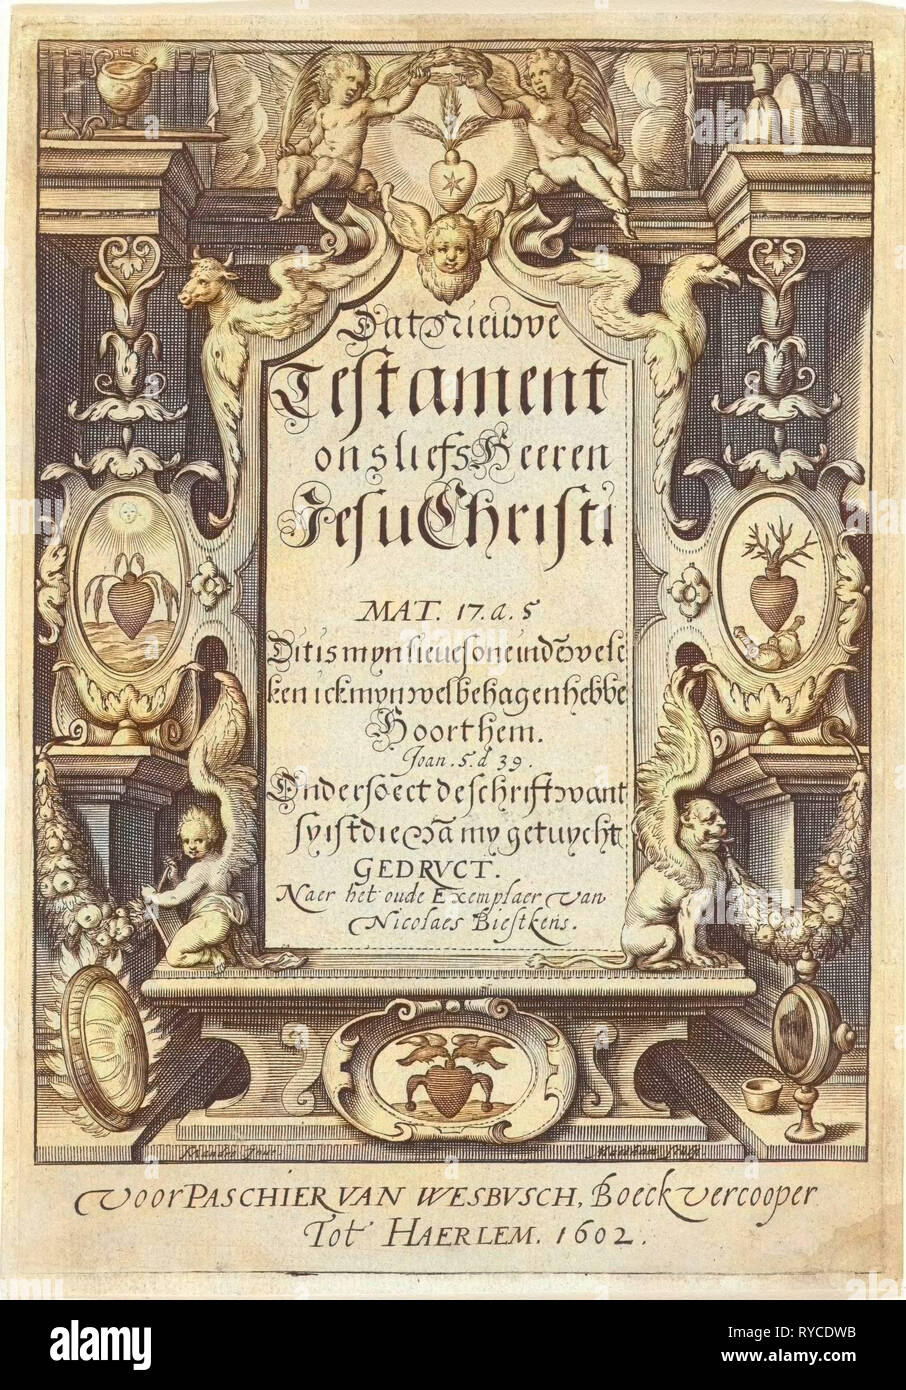 Dat Nieuwe
Testament
ons liefs Heeren
Jesu Christi
MAT. 17. a. 5
Dit is myn lieve sone in dē welc
ken ick myn welbehagen hebbe
Hoort hem.
Joan. 5. d 39.
Ondersoect de schrift want
sy ist die vā my getuycht
GEDRVCT.
Naer het oude Exemplaer van
Nicolaes Biestkens.
KVander Inue.
Maetham Sculp.
Voor PASCHIER VAN WESBVSCH, Boeckvercooper
Tot HAERLEM. 1602.
alamy
alamy
Image ID: RYCDWB
www.alamy.com